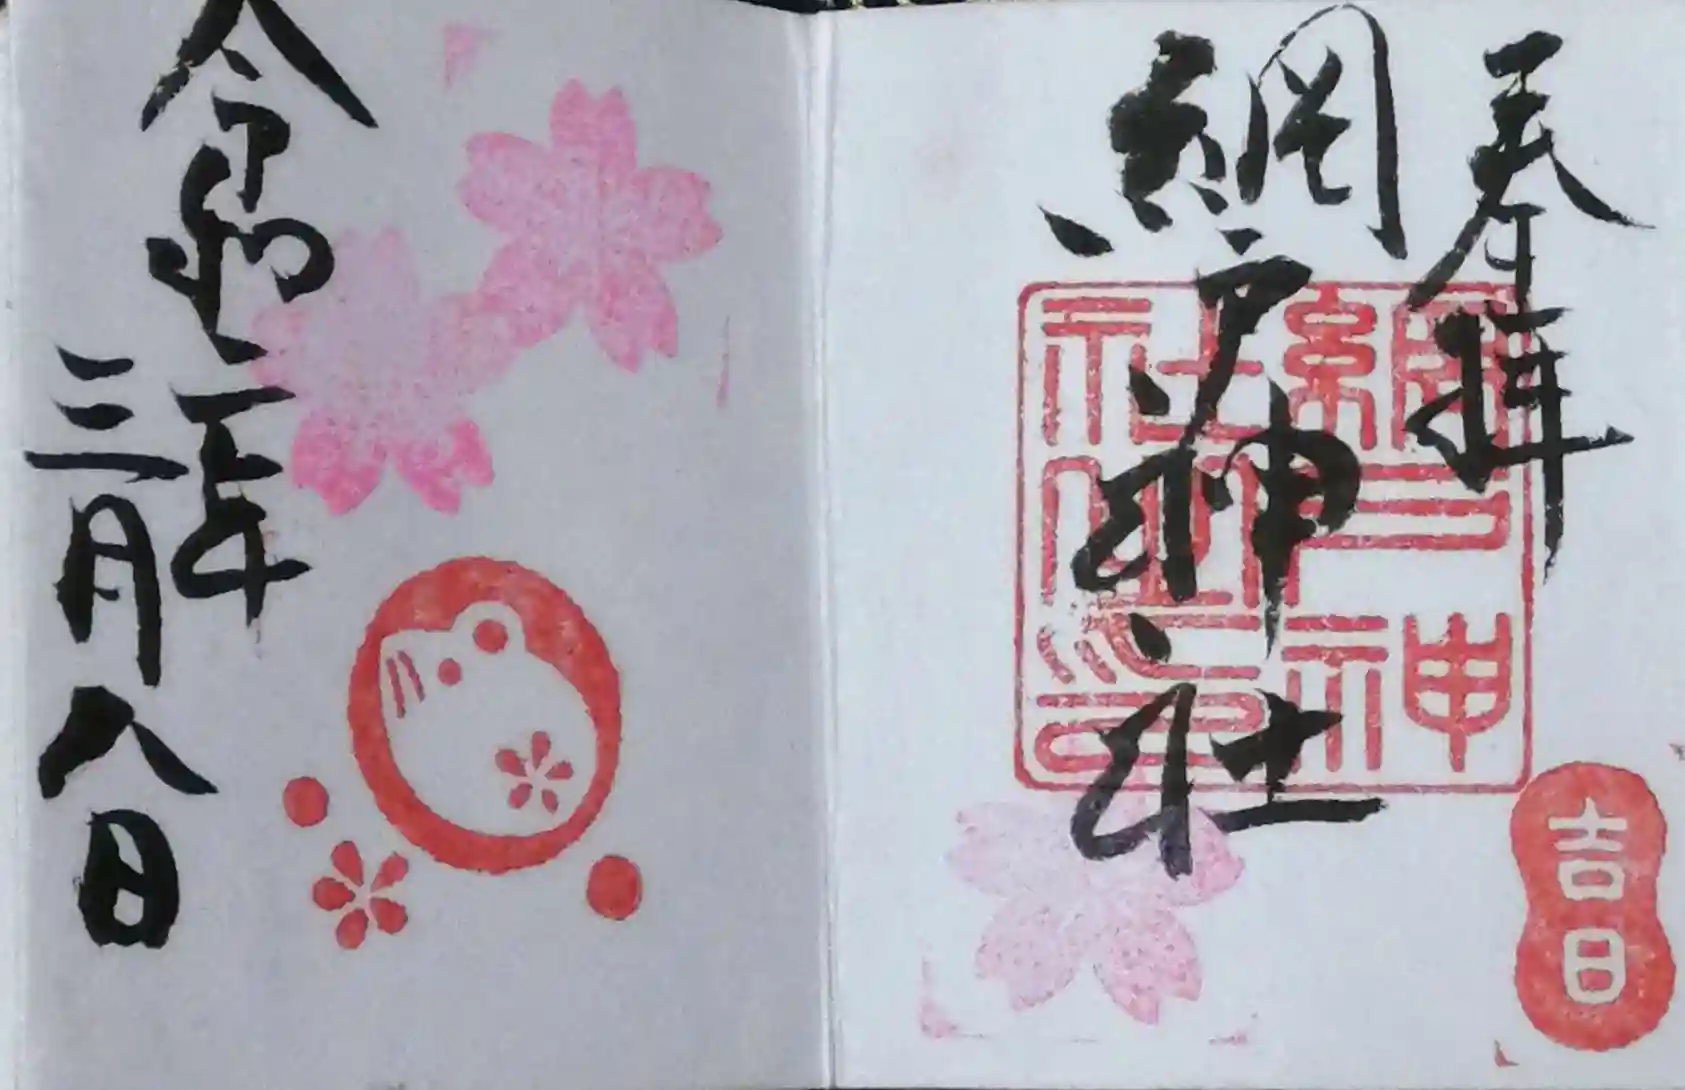 奉拝
網戸神社
網戸神
社之印
吉日
令和二年
三月八日